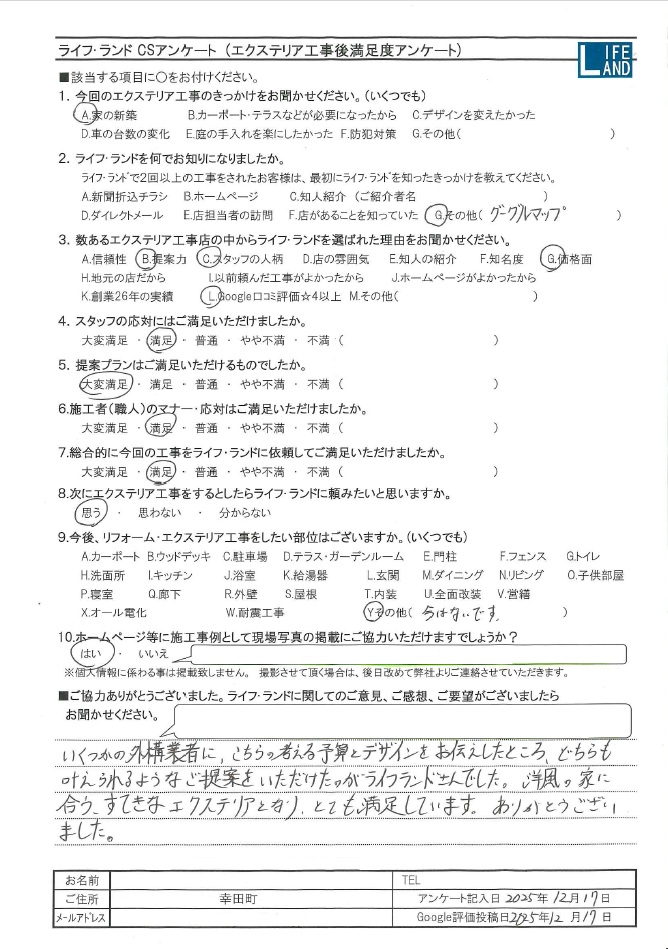 ライフ・ランド CSアンケート（エクステリア工事後満足度アンケート）
LIFE LAND
■該当する項目に〇をお付けください。
1. 今回のエクステリア工事のきっかけをお聞かせください。（いくつでも）
A.家の新築 B.カーポート・テラスなどが必要になったから C.デザインを変えたかった
D.車の台数の変化 E.庭の手入れを楽にしたかった F.防犯対策 G.その他（ ）
2. ライフ・ランドを何でお知りになりましたか。
ライフ・ランドで2回以上の工事をされたお客様は、最初にライフ・ランドを知ったきっかけを教えてください。
A.新聞折込チラシ B.ホームページ C.知人紹介（ご紹介者名 ）
D.ダイレクトメール E.店担当者の訪問 F.店があることを知っていた G.その他（ グーグルマップ ）
3. 数あるエクステリア工事店の中からライフ・ランドを選ばれた理由をお聞かせください。
A.信頼性 B.提案力 C.スタッフの人柄 D.店の雰囲気 E.知人の紹介 F.知名度 G.価格面
H.地元の店だから I.以前頼んだ工事がよかったから J.ホームページがよかったから
K.創業26年の実績 L.Google口コミ評価☆4以上 M.その他（ ）
4. スタッフの応対にはご満足いただけましたか。
大変満足 ・ 満足 ・ 普通 ・ やや不満 ・ 不満（ ）
5. 提案プランはご満足いただけるものでしたか。
大変満足 ・ 満足 ・ 普通 ・ やや不満 ・ 不満（ ）
6.施工者（職人）のマナー・応対はご満足いただけましたか。
大変満足 ・ 満足 ・ 普通 ・ やや不満 ・ 不満（ ）
7.総合的に今回の工事をライフ・ランドに依頼してご満足いただけましたか。
大変満足 ・ 満足 ・ 普通 ・ やや不満 ・ 不満（ ）
8.次にエクステリア工事をするとしたらライフ・ランドに頼みたいと思いますか。
思う ・ 思わない ・ 分からない
9.今後、リフォーム・エクステリア工事をしたい部位はございますか。（いくつでも）
A.カーポート B.ウッドデッキ C.駐車場 D.テラス・ガーデンルーム E.門柱 F.フェンス G.トイレ
H.洗面所 I.キッチン J.浴室 K.給湯器 L.玄関 M.ダイニング N.リビング O.子供部屋
P.寝室 Q.廊下 R.外壁 S.屋根 T.内装 U.全面改装 V.営繕
X.オール電化 W.耐震工事 Y.その他（ 今はないです。 ）
10.ホームページ等に施工事例として現場写真の掲載にご協力いただけますでしょうか？
はい ・ いいえ
※個人情報に係わる事は掲載致しません。 撮影させて頂く場合は、後日改めて弊社よりご連絡させていただきます。
■ご協力ありがとうございました。ライフ・ランドに関してのご意見、ご感想、ご要望がございましたら
お聞かせください。
いくつかの外構業者に、こちらの考える予算とデザインをお伝えしたところ、どちらも
叶えられるようなご提案をいただけたのがライフランドさんでした。洋風の家に
合う、すてきなエクステリアとなり、とても満足しています。ありがとうござい
ました。
お名前 TEL
ご住所 幸田町 アンケート記入日 2025年 12月 17日
メールアドレス Google評価投稿日 2025年 12月 17日